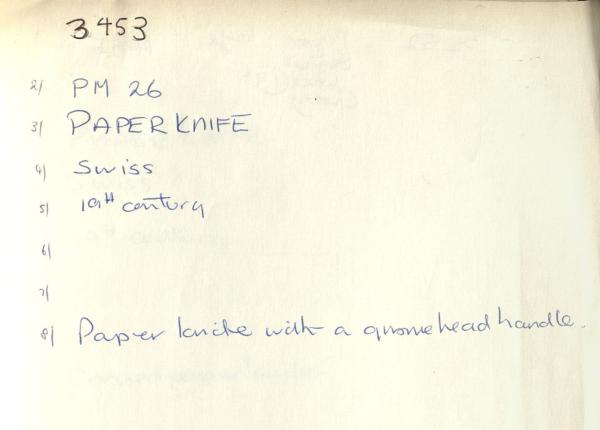 3453
2/ PM 26
3/ PAPER KNIFE
4/ Swiss
5/ 19th century
6/
7/
8/ Paper knife with a gnome head handle.